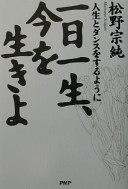 松野宗純
人生とダンスをするように
一日一生、
今を
生きよ
PHP